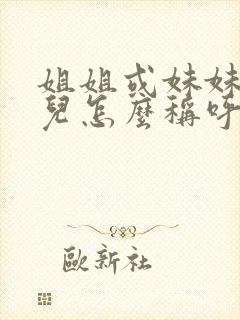 姐姐或妹妹
兒怎麼稱呼
歐新社